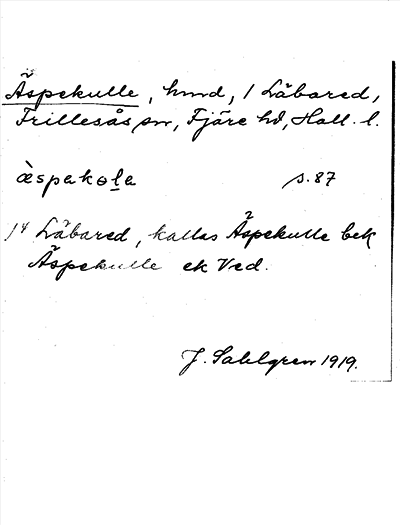 Äspekulle, hmd, 1 Läbared,
Frillesås sn, Fjäre hd, Hall. l.
æspakola s. 87
1⁴ Läbared, kallas Äspekulle bek
Äspekulle ek Ved.
J. Sahlgren 1919.